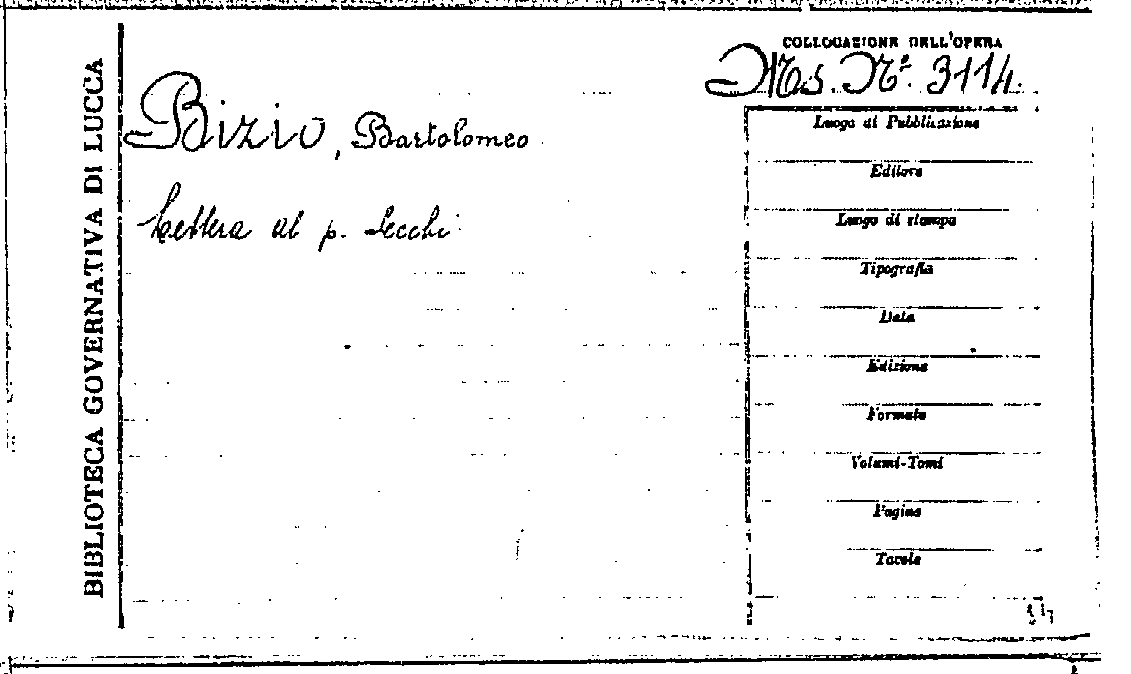 BIBLIOTECA GOVERNATIVA DI LUCCA
COLLOCAZIONE DELL'OPERA
Ms. Nº. 3114.
Bizio, Bartolomeo
Lettera al p. Secchi
Luogo di Pubblicazione
Editore
Luogo di stampa
Tipografia
Data
Edizione
Formato
Volumi-Tomi
Pagine
Tavole